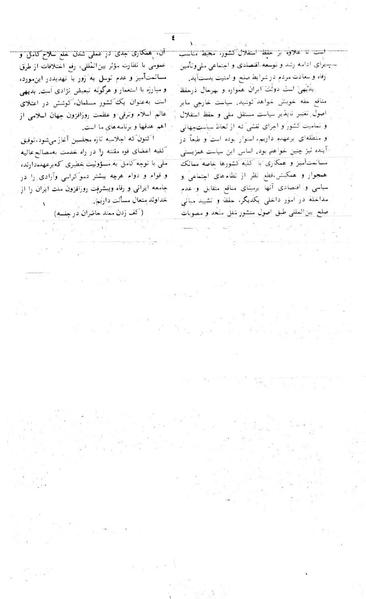 ٤
است تا علاوه بر حفظ استقلال کشور، محیط مناسب
برای ادامه رشد و توسعه اقتصادی و اجتماعی ملی و تأمین
رفاه و سعادت مردم در شرایط صلح و امنیت بدست آید.
بدیهی است دولت ایران همواره و بهرحال در حفظ
منافع حقه خویش خواهد کوشید. سیاست خارجی ما بر
اصول تغییر ناپذیر سیاست مستقل ملی و حفظ استقلال
و تمامیت کشور و اجرای نقشی که از لحاظ سیاست جهانی
و منطقه‌ای برعهده داریم، استوار بوده است و طبعاً در
آینده نیز چنین خواهد بود. اساس این سیاست همزیستی
مسالمت‌آمیز و همکاری با کلیه کشورها خاصه ممالک
همجوار و همکیش، قطع نظر از نظام‌های اجتماعی و
سیاسی و اقتصادی آنها برمبنای منافع متقابل و عدم
مداخله در امور داخلی یکدیگر، حفظ و تشیید مبانی
صلح بین‌المللی طبق اصول منشور ملل متحد و مصوبات
آن، همکاری جدی در عملی شدن خلع سلاح کامل و
عمومی با نظارت مؤثر بین‌المللی، رفع اختلافات از طرق
مسالمت‌آمیز و عدم توسل به زور یا تهدید در این مورد،
و مبارزه با استعمار و هرگونه تبعیض نژادی است. بدیهی
است به‌عنوان یک کشور مسلمان، کوشش در اعتلای
عالم اسلام و ترقی و عظمت روزافزون جهان اسلامی از
اهم هدفها و برنامه‌های ما است.
اکنون که اجلاسیه تازه مجلسین آغاز می‌شود، توفیق
کلیه اعضای قوه مقننه را در راه خدمت به مصالح عالیه
ملی با توجه کامل به مسؤولیت خطیری که برعهده دارند،
و قوام و دوام هرچه بیشتر دموکراسی و آزادی را در
جامعه ایرانی و رفاه و پیشرفت روزافزون ملت ایران را از
خداوند متعال مسألت داریم.
( کف زدن ممتد حاضران در جلسه )